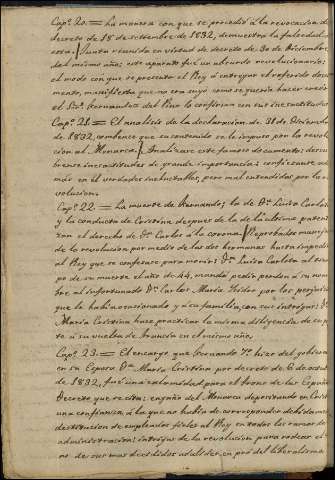 Capº 20. = La manera con que se procedió a la revocacion del
decreto de 18 de setiembre de 1832, demuestra la falsedad de
esta. Junta reunida en virtud de decreto de 30 de Diciembre
del mismo año; este aparato fué un absurdo revolucionario;
el modo con que se presentó el Rey á entregar el referido docu
mento, manifiesta que no era suyo como se queria hacer creer:
el Srio. Fernandez del Pino lo confirma con sus inexactitudes
Capº 21. = El analisis de la declaracion de 31 de Diciembre
de 1832, combence que su contenido se le impuso por la revolu
cion al Monarca. Analizase este famoso documento; descu
brense inexactitudes de grande importancia; confiesanse en
medio en él verdades indudables, pero mal entendidas por la re
volucion.
Capº 22. = La muerte de Fernando; la de Dª Luisa Carlota
y la conducta de Cristina despues de la de la última paten
tizan el derecho de Dn. Carlos a la corona. Reprobados manejos
de la revolucion por medio de las dos hermanas hasta impedir
al Rey que se confesase para morir: Dª Luisa Carlota al tiem
po de su muerte el año de 44, mandó pedir perdon á su nom
bre al infortunado Dn. Carlos Maria Isidro por los perjuicios
que le habia ocasionado y á su familia, con sus intrigas: Dª
Maria Cristina hizo practicar la misma diligencia de
á su vuelta de Francia en el mismo año.
Capº 23. = El encargo que Fernando 7º hizo del gobierno
en su Esposa Dª Maria Cristina por decreto de 6 de octubre
de 1832, fué una calamidad para el trono de las Españas
Decreto que se cita: engaño del Monarca depositando en Cristina
una confianza á la que no habia de corresponder debidamente
destitucion de empleados fieles al Rey en todos los ramos de
administracion: intrigas de la revolucion para rodear el
no de sus mas decididos adalides en pró del liberalismo